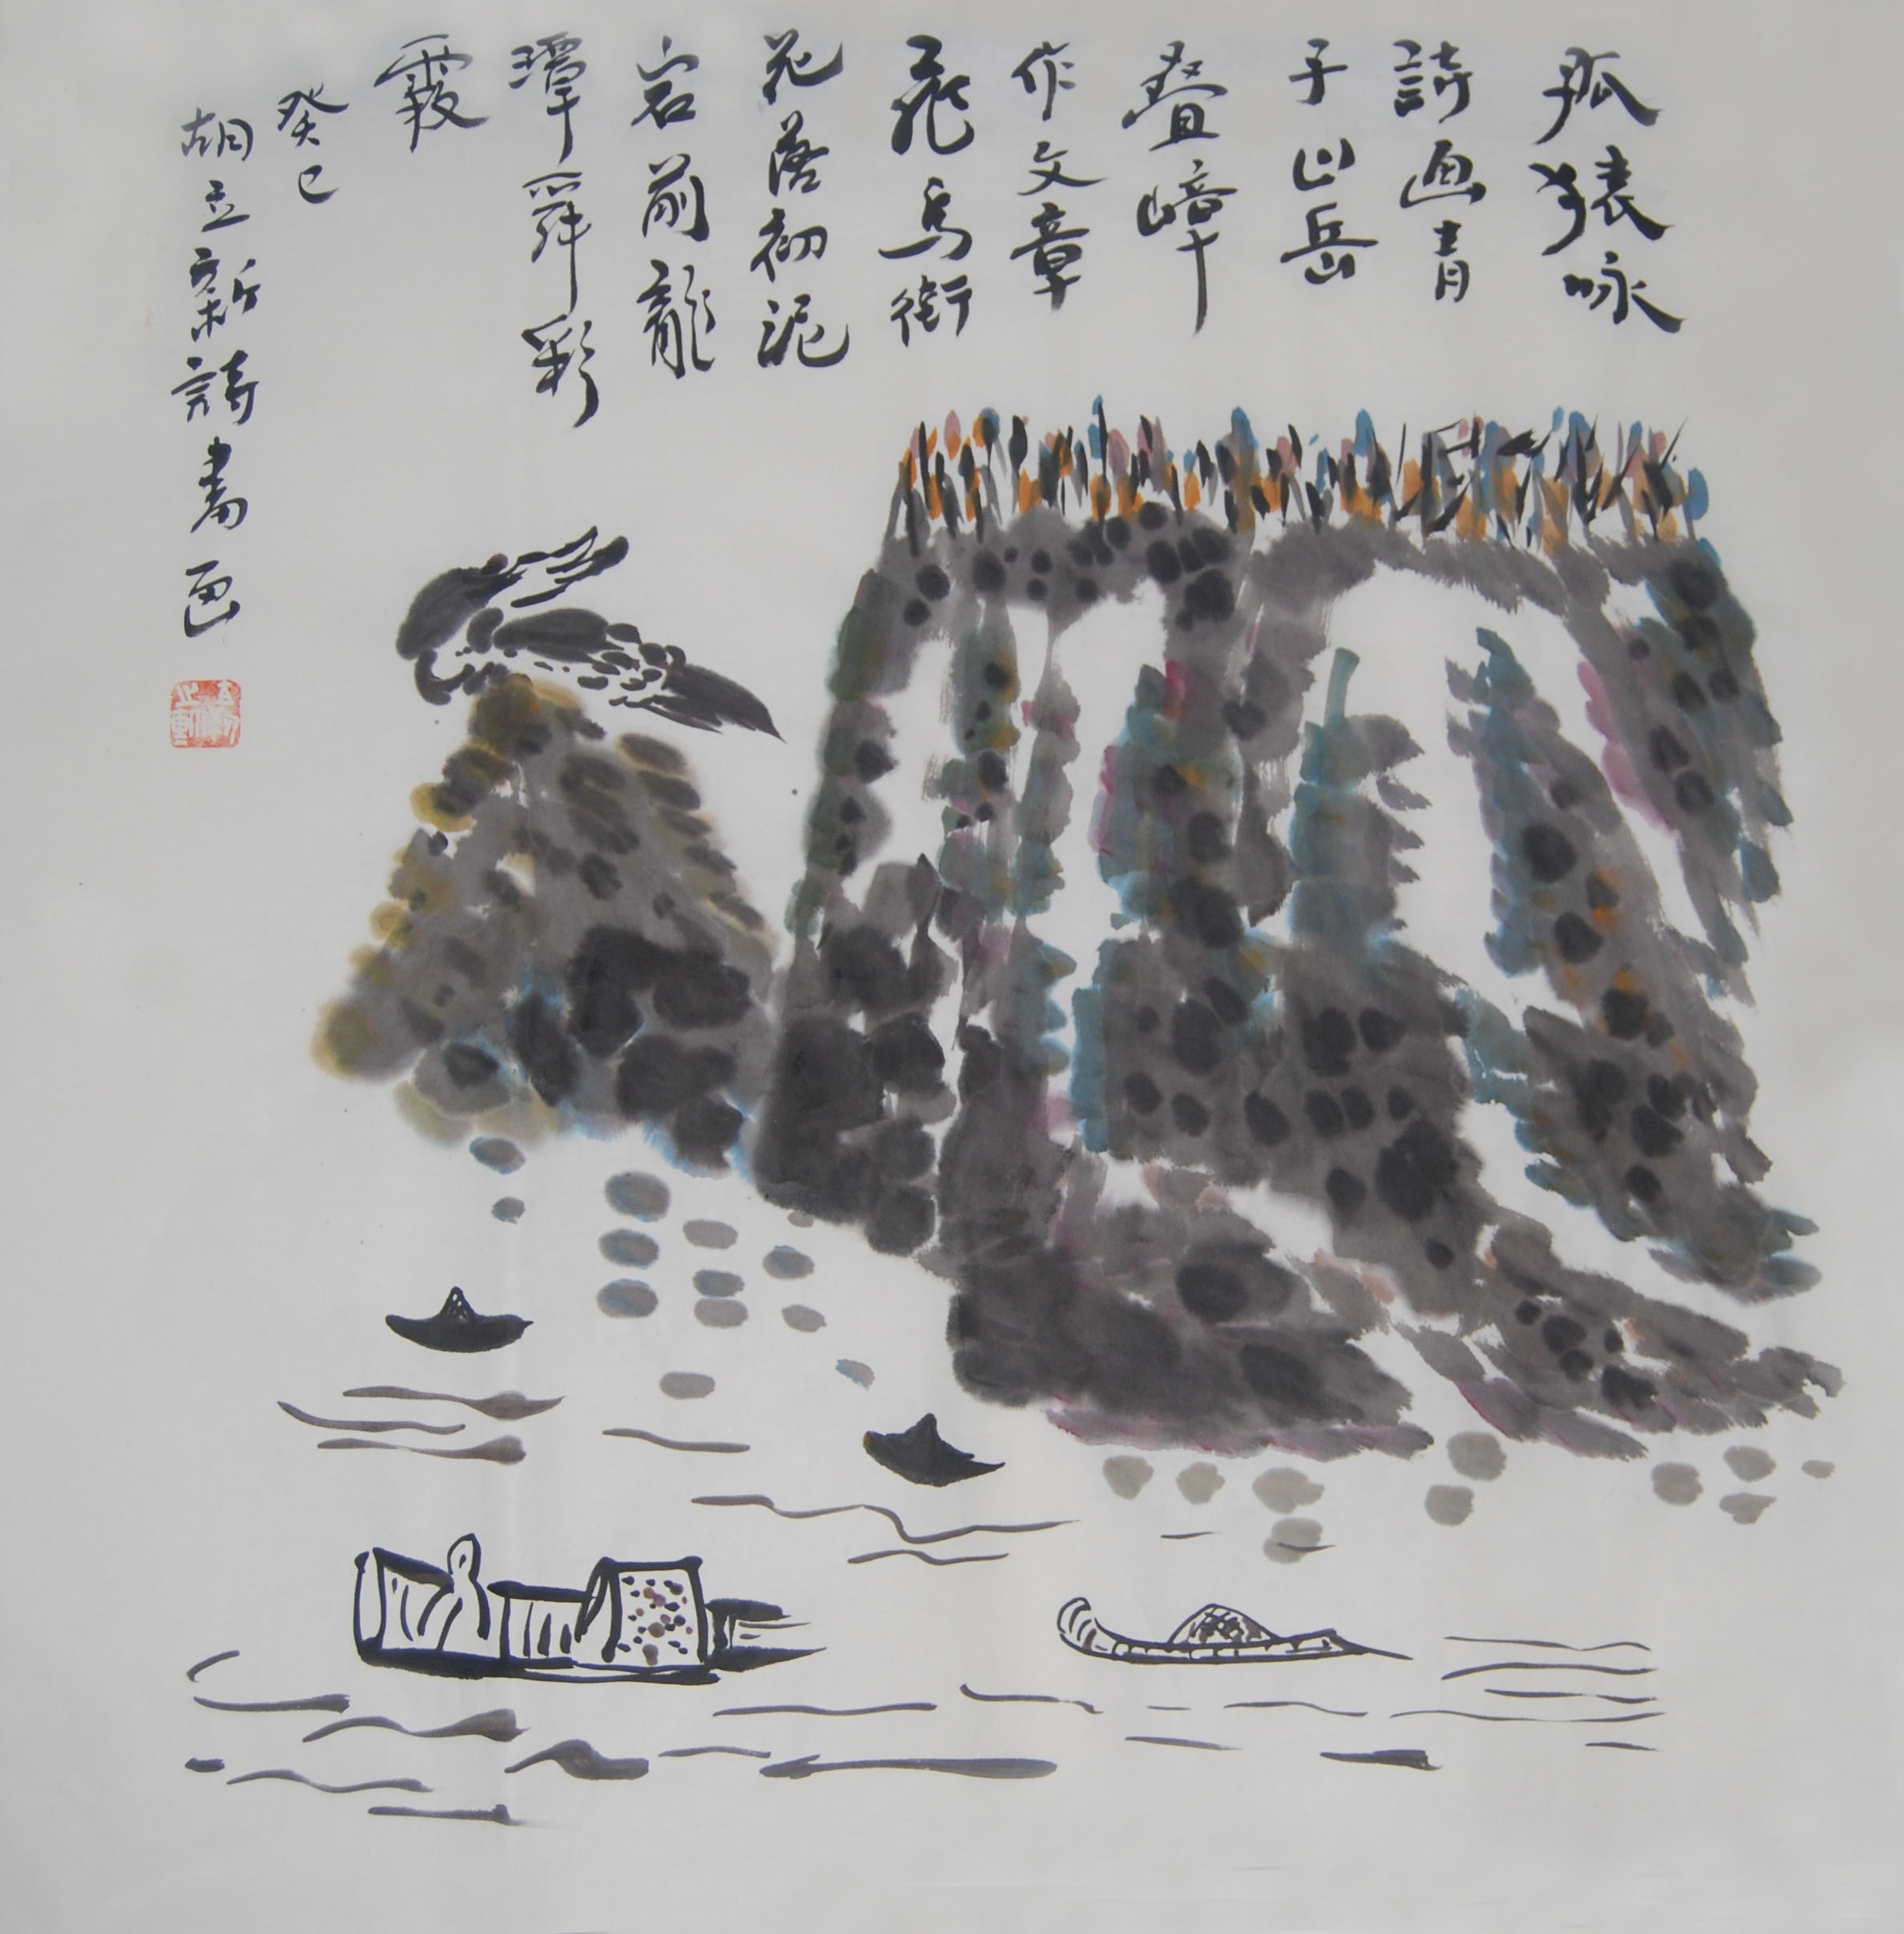 孤猿咏
詩画青
子山岳
叠嶂
作文章
飛鸟銜
花落初泥
岩前龍
潭舞彩
霞
癸巳
胡立新詩書画